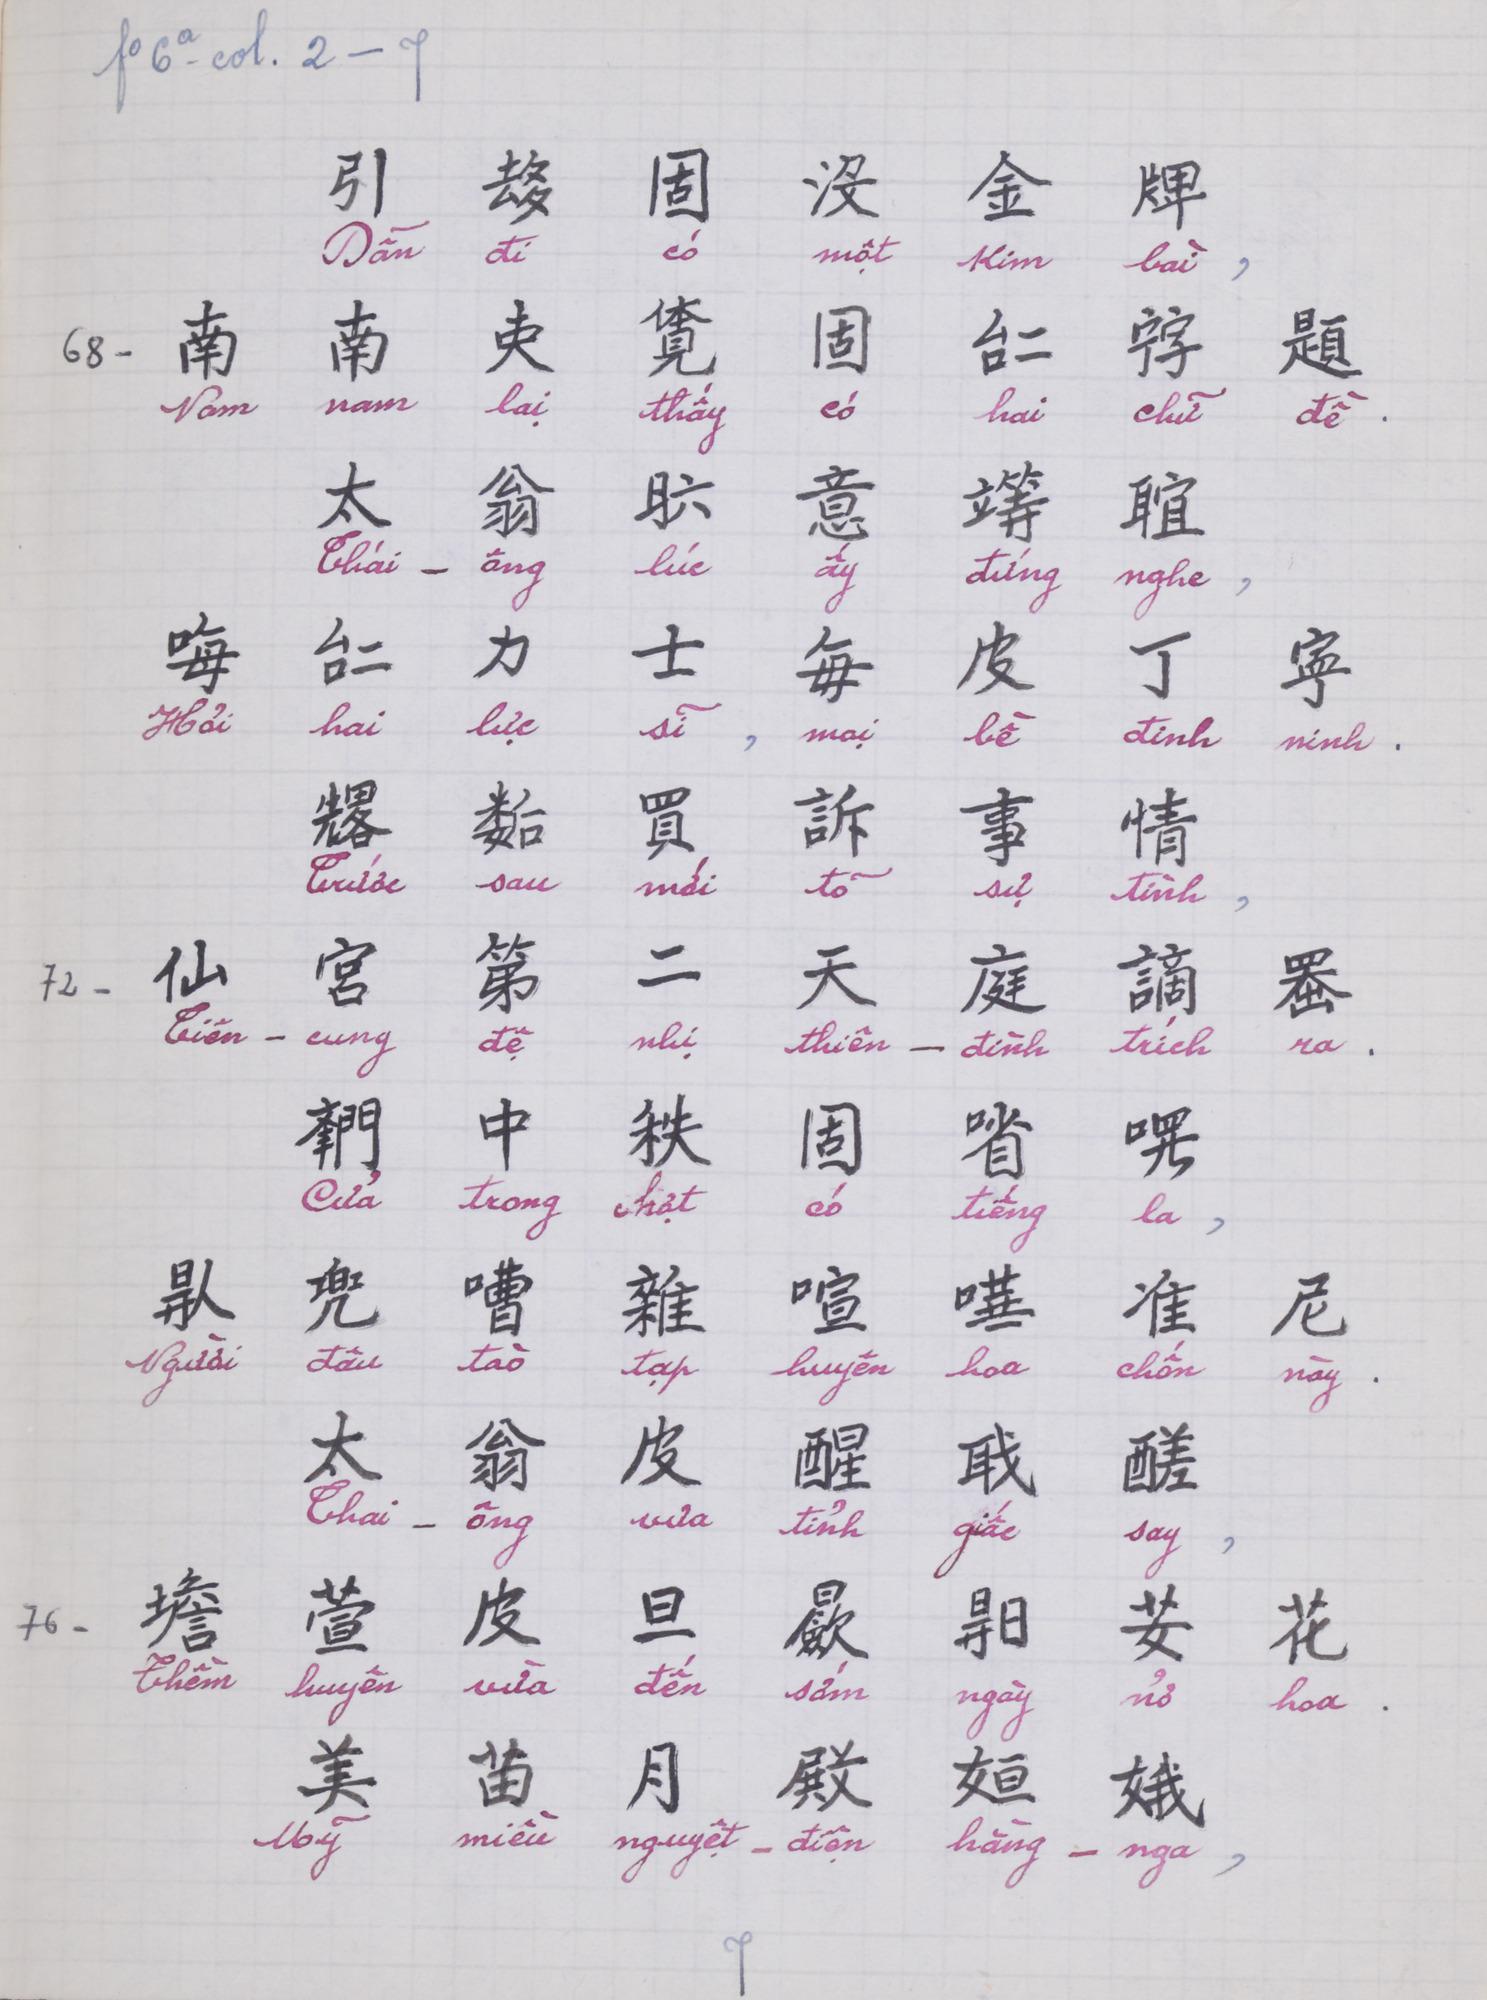 fº 6ª - col. 2 – 7
引 𠫾 固 没 金 牌
Dẫn đi có một Kim bài,
68- 南 南 吏 𧡊 固 𠄩 𡨸 題
Nam nam lại thấy có hai chữ đề.
太 翁 𣅶 意 䇾 𦖑
Thái – ông lúc ấy đứng nghe,
𠳨 𠄩 力 士 每 皮 丁 寧
Hỏi hai lực sĩ, mọi bề đinh ninh.
𠓀 𡢐 買 訴 事 情
Trước sau mới tỏ sự tình,
72- 仙 宮 第 二 天 庭 謫 𦋦
Tiên – cung đệ nhị thiên – đình trích ra.
𨷶 中 秩 固 㗂 𠸍
Cửa trong chật có tiếng la,
𠊛 兜 嘈 雜 喧 嘩 准 尼
Người đâu tào tạp huyên hoa chốn này.
太 翁 皮 醒 𦖻 醝
Thai – ông vừa tỉnh giấc say,
76- 𡍞 萱 皮 旦 𣌋 𣈗 芺 花
Thềm huyên vừa đến sớm ngày nở hoa.
美 苗 月 殿 姮 娥
Mỹ miều nguyệt – điện hằng – nga,
7